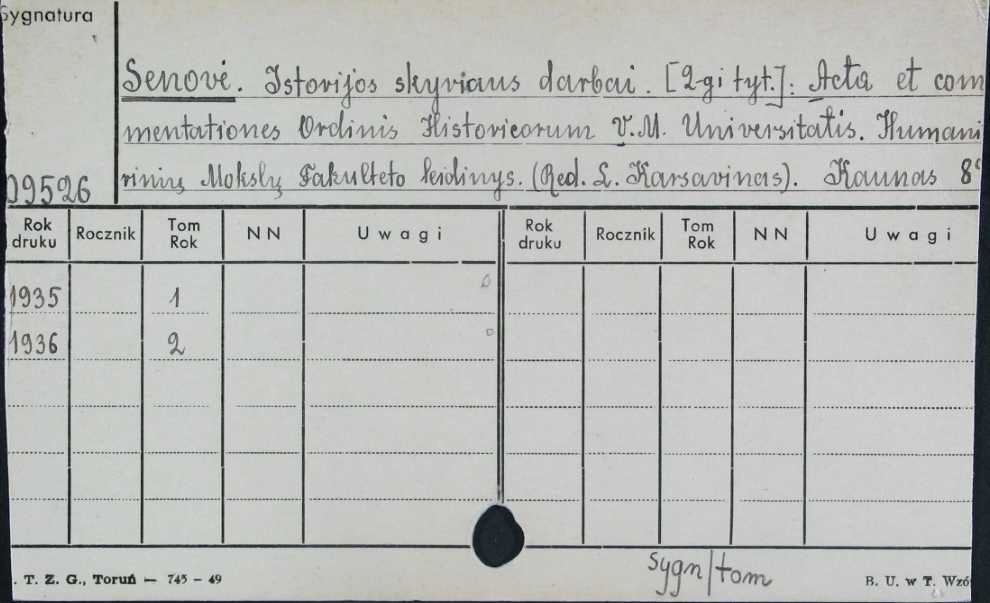 Sygnatura
Senovė. Istorijos skyriaus darbai. [2-gi tyt.]: Acta et com
mentationes Ordinis Historicorum V.M. Universitatis. Humani
rinių Mokslų Fakulteto leidinys. (Red. L. Karsavinas). Kaunas 8°
09526
Rok druku Rocznik Tom Rok NN Uwagi Rok druku Rocznik Tom Rok NN Uwagi
1935 1
1936 2
sygn/tom
. T. Z. G., Toruń — 745 - 49 B. U. w T. Wzó